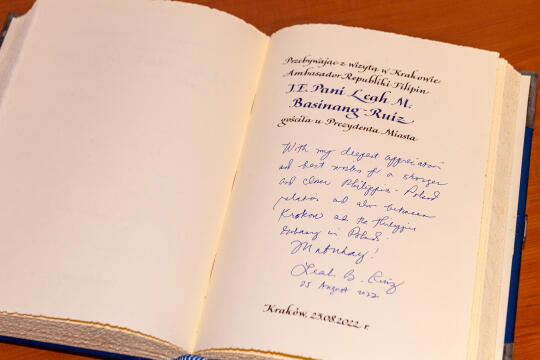 Przebywając z wizytą w Krakowie
Ambasador Republiki Filipin
J.E. Pani Leah M.
Basinang-Ruiz
gościła u Prezydenta Miasta
With my deepest appreciation
and best wishes for a stronger
and closer Philippine - Poland
relations and also between
Krakow and the Philippine
Embassy in Poland.
Mabuhay!
Leah B. Ruiz
25 August 2022
Kraków, 25.08.2022 r.